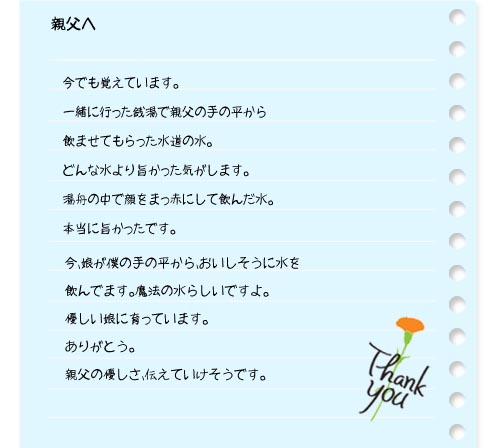 親父へ
今でも覚えています。
一緒に行った銭湯で親父の手の平から
飲ませてもらった水道の水。
どんな水より旨かった気がします。
湯舟の中で顔をまっ赤にして飲んだ水。
本当に旨かったです。
今、娘が僕の手の平から、おいしそうに水を
飲んでます。魔法の水らしいですよ。
優しい娘に育っています。
ありがとう。
親父の優しさ、伝えていけそうです。
Thank
you